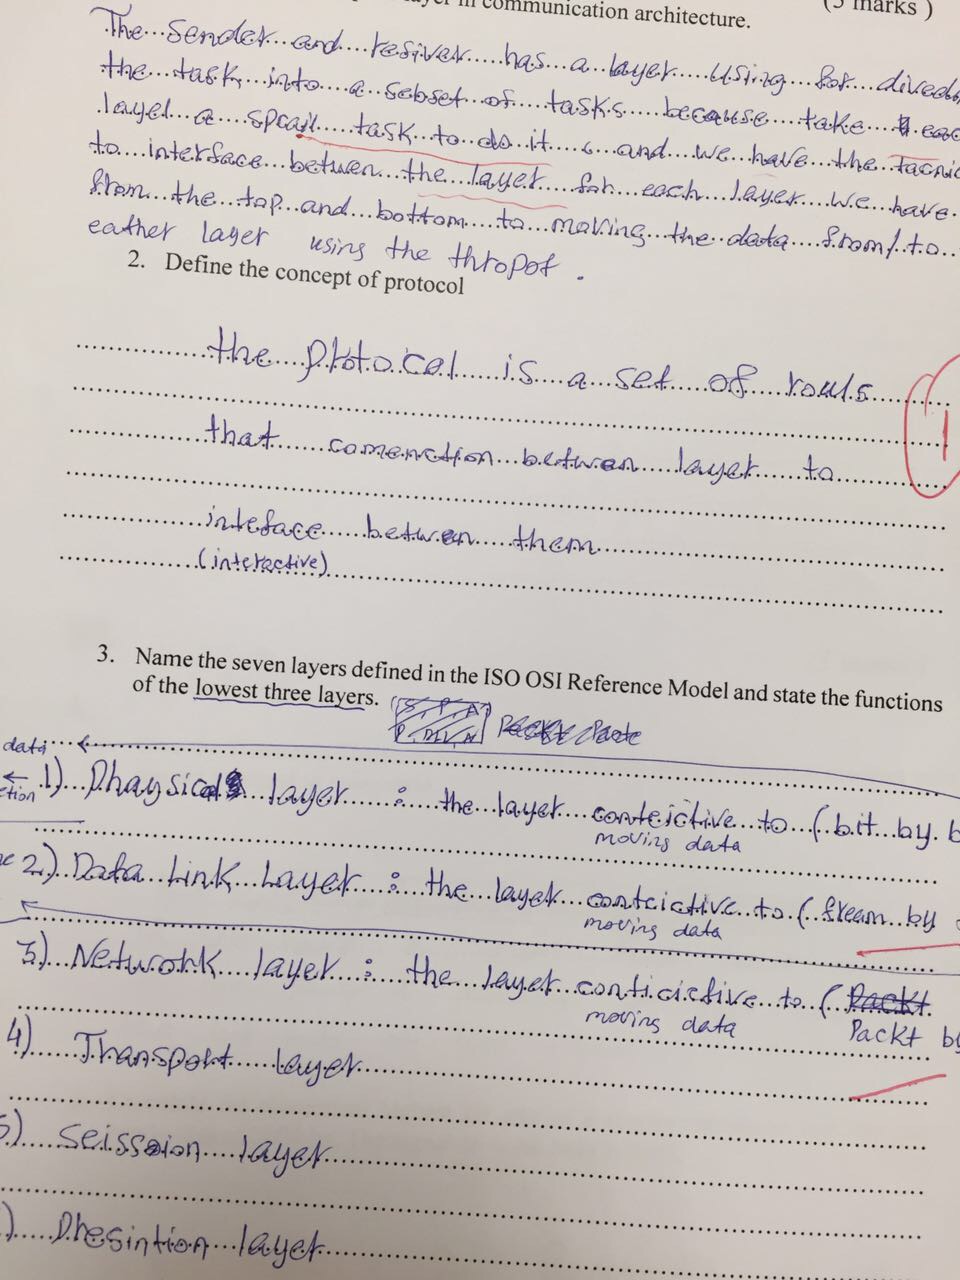 layer in communication architecture. (5 marks)
The sender and resiver has a layer using for dived
the task into a sebset of tasks because take eac
layer a sprail task to do it and we have the tacnic
to interface betwen the layer for each layer we have
from the top and bottom to moving the data from/to
eather layer using the thropot.
2. Define the concept of protocol
the ptotocal is a set of rouls
1
that comenction betwen layer to
inteface betwen them
(interactive)
3. Name the seven layers defined in the ISO OSI Reference Model and state the functions
of the lowest three layers.
data
1) Phaysical layer : the layer conteictive to (bit by b
moving data
2) Data Link Layer : the layer conteictive to (fream by
moving data
3) Network layer : the layer conticictive to (Packt
moving data Packt by
4) Transport layer
5) seission layer
) Presintion layer